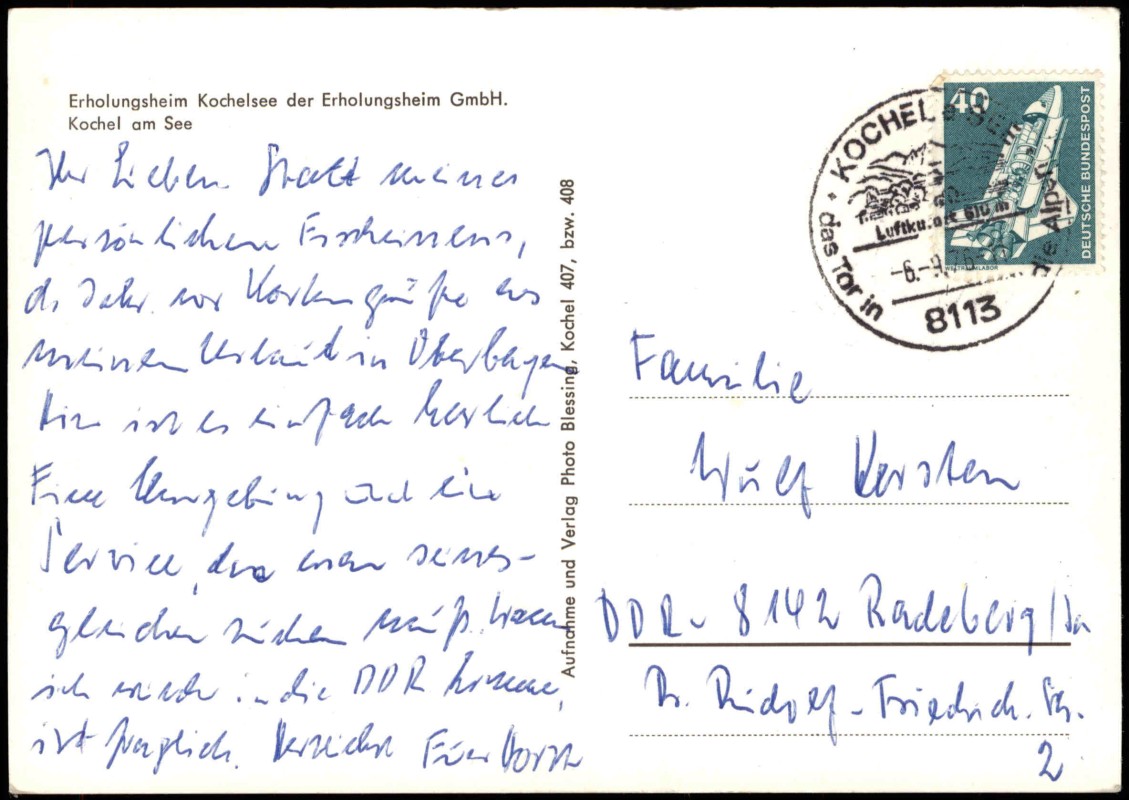 Erholungsheim Kochelsee der Erholungsheim GmbH.
Kochel am See
Ihr Lieben. Statt meines
persönlichen Erscheinens,
ds Jahr nur Kartengrüße aus
meinem Urlaub in Oberbayern
Hier ist es einfach herrlich
Eine Umgebung und ein
Service, den man seines-
gleichen suchen muß. Wann
ich wieder in die DDR komme,
ist fraglich. Herzlichst Euer Horst
Aufnahme und Verlag Photo Blessing, Kochel 407, bzw. 408
KOCHEL a. SEE
Luftku.ort 610 m
das Tor in die Alpen
-6.-9.76-
8113
40
DEUTSCHE BUNDESPOST
WELTRAUMLABOR
Familie
Wulf Kersten
DDR - 8142 Radeberg/Sa
Dr. Rudolf-Friedrich-Str.
2